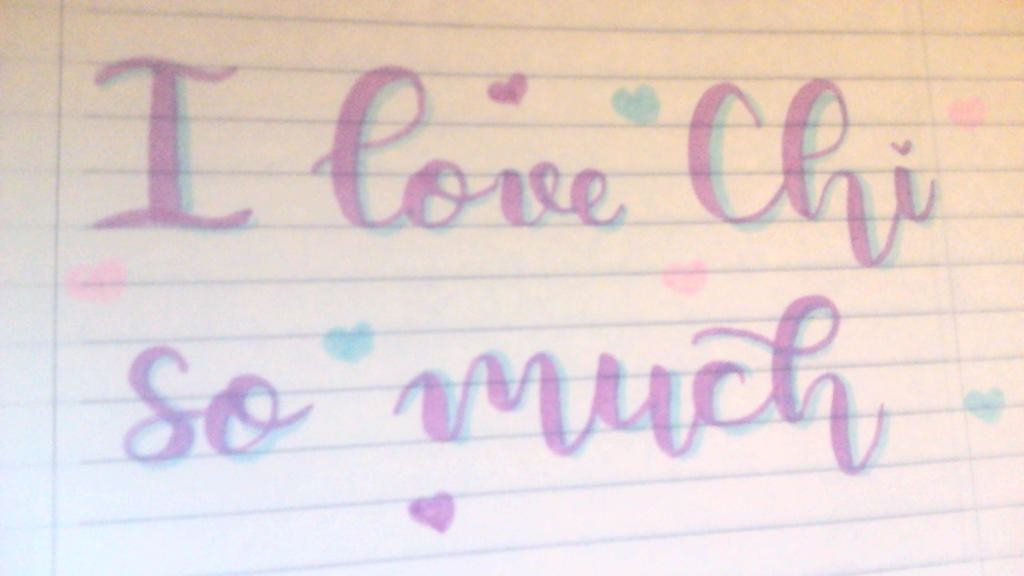 I love Chi
so much